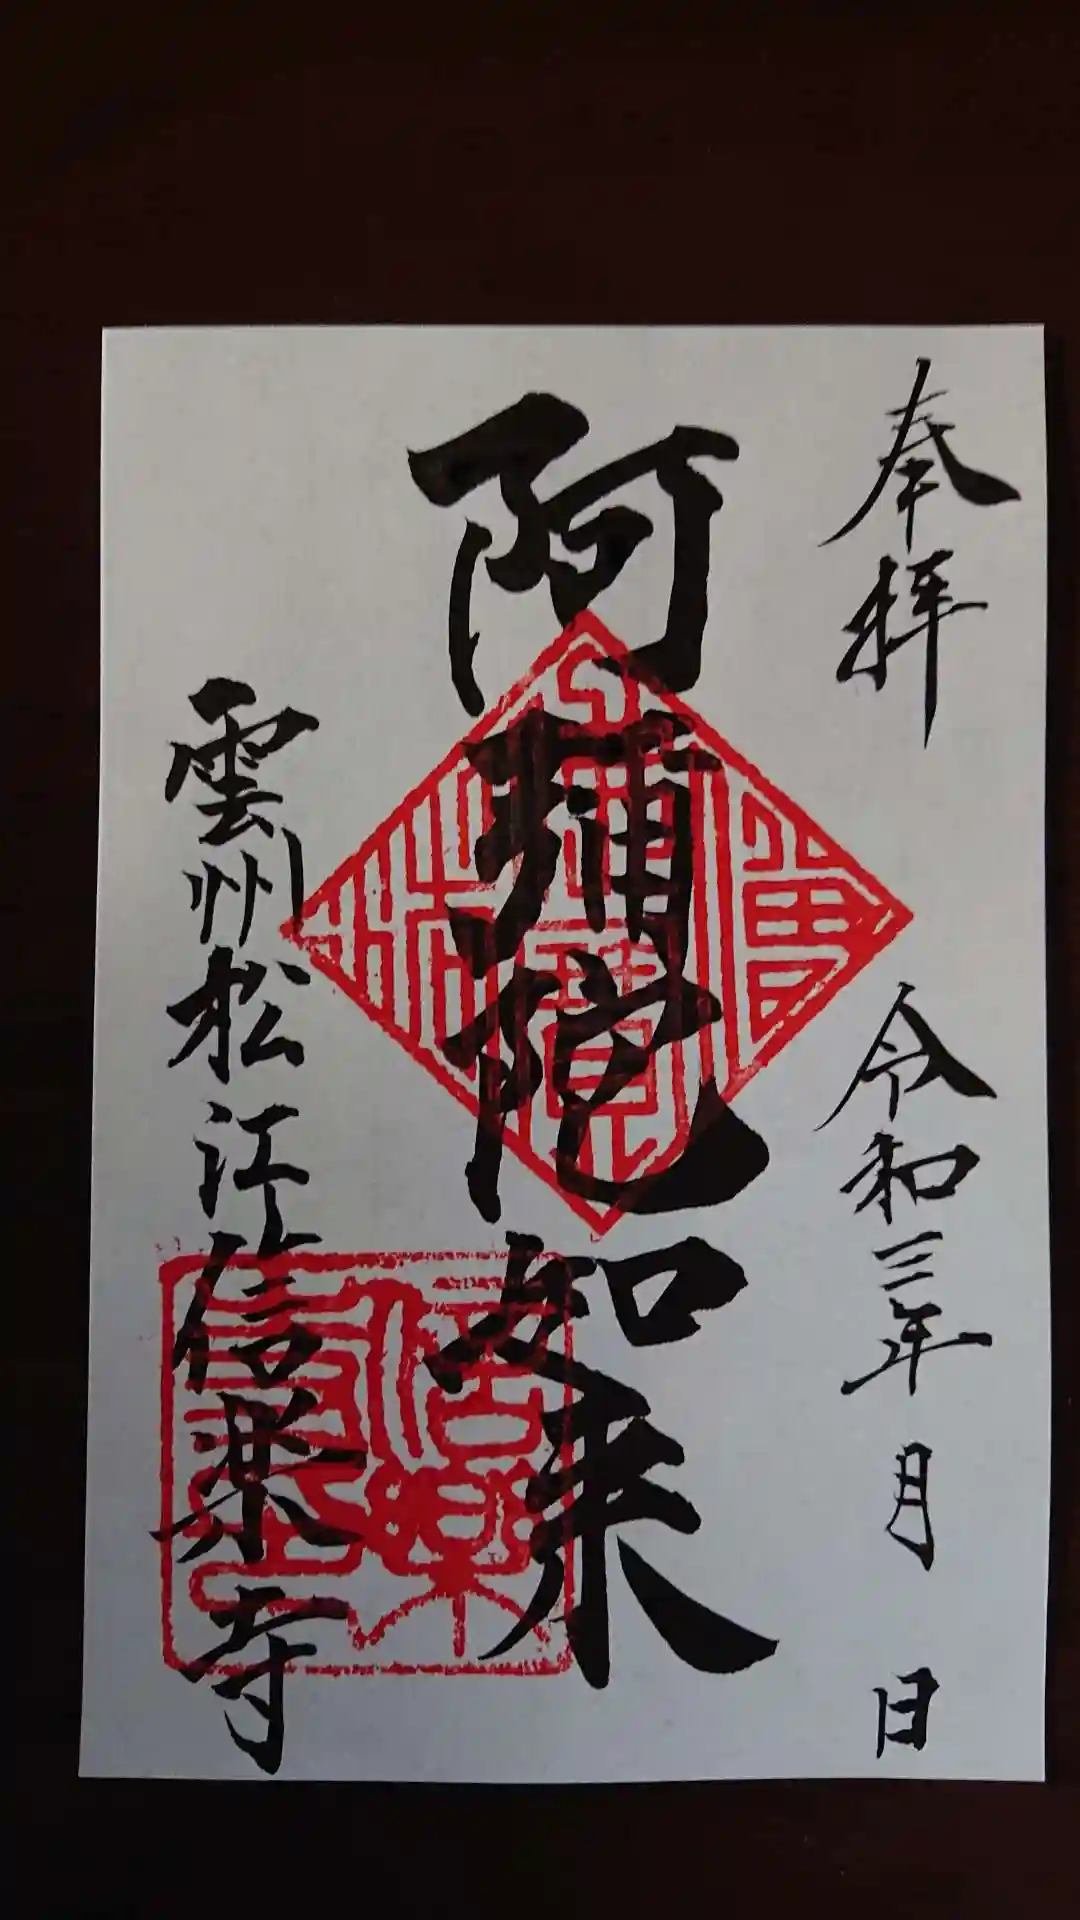 奉拝
令和三年 月 日
阿彌陀如来
雲州松江信楽寺